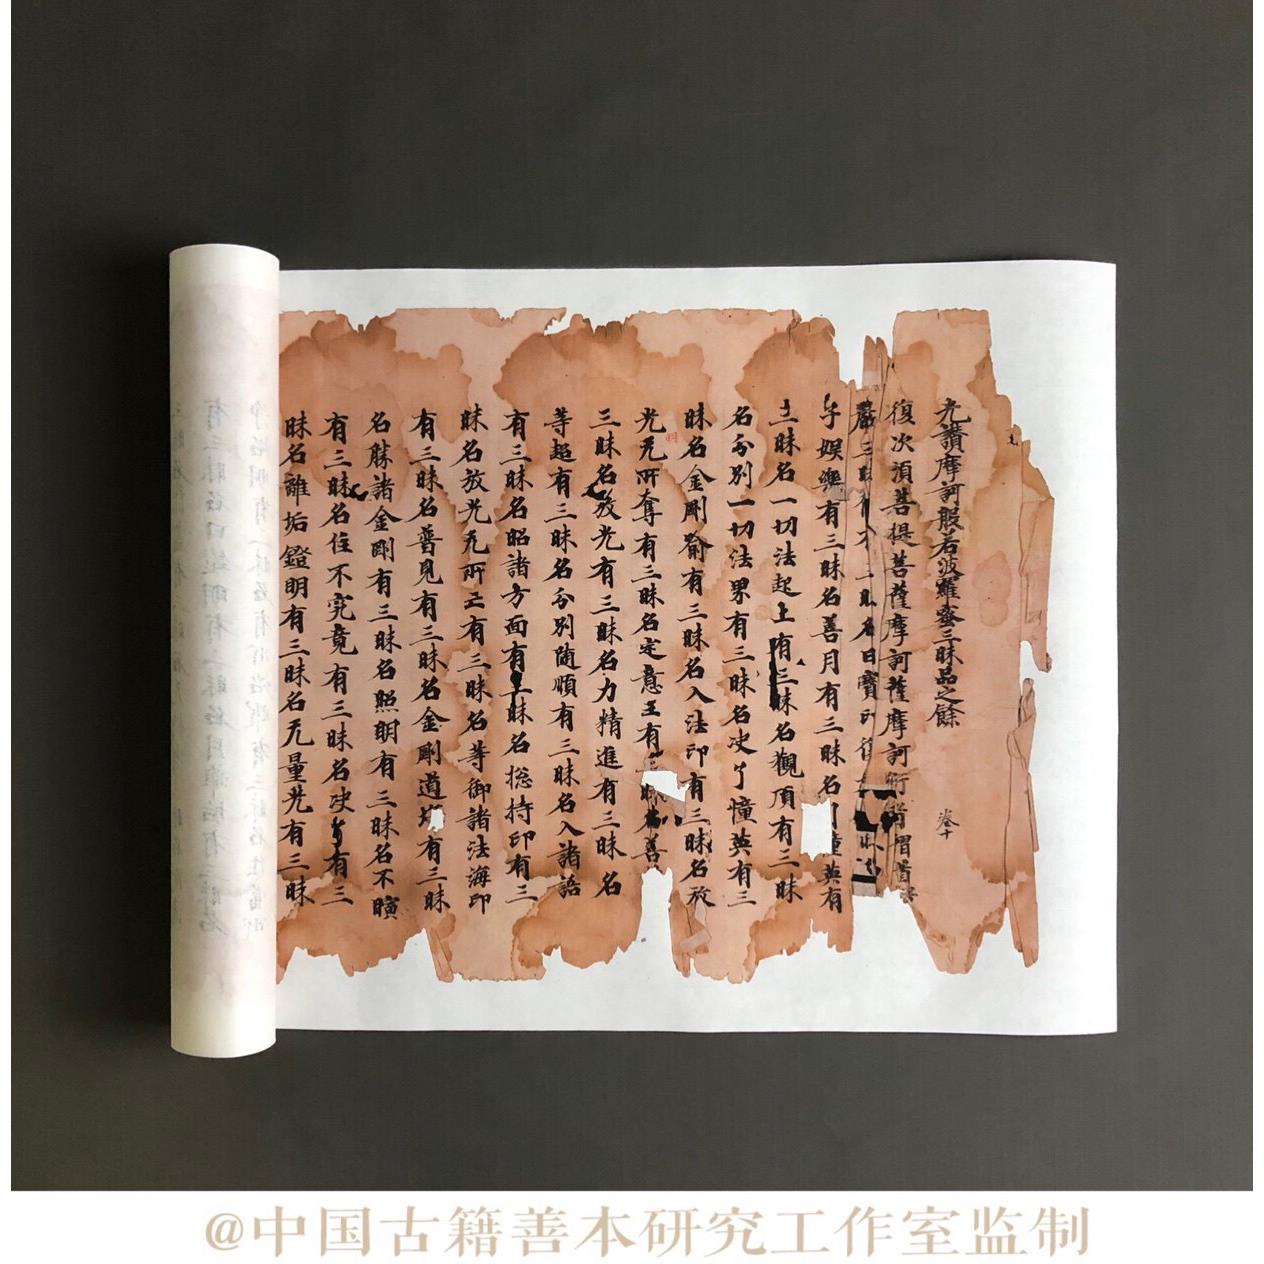 光讚摩訶般若波羅蜜三昧品之餘 卷十
復次須菩提菩薩摩訶薩摩訶衍者
嚴三昧 有三昧名日寶印復
子娛樂有三昧名善月有三昧名 幢英有
三昧名一切法起上有三昧名觀頂有三昧
名分別一切法界有三昧名决了幢英有三
昧名金剛喻有三昧名入法印有三昧名放
光无所奪有三昧名定意王有三昧名善
三昧名放光有三昧名力精進有三昧名
等超有三昧名分別随順有三昧名入諸語
有三昧名昭諸方面有三昧名捴持印有三
昧名放光无所亡有三昧名等御諸法海印
有三昧名普見有三昧名金剛道場有三昧
名勝諸金剛有三昧名照明有三昧名不瞚
有三昧名住不究竟有三昧名决了有三
昧名離垢鐙明有三昧名无量光有三昧
@中国古籍善本研究工作室监制